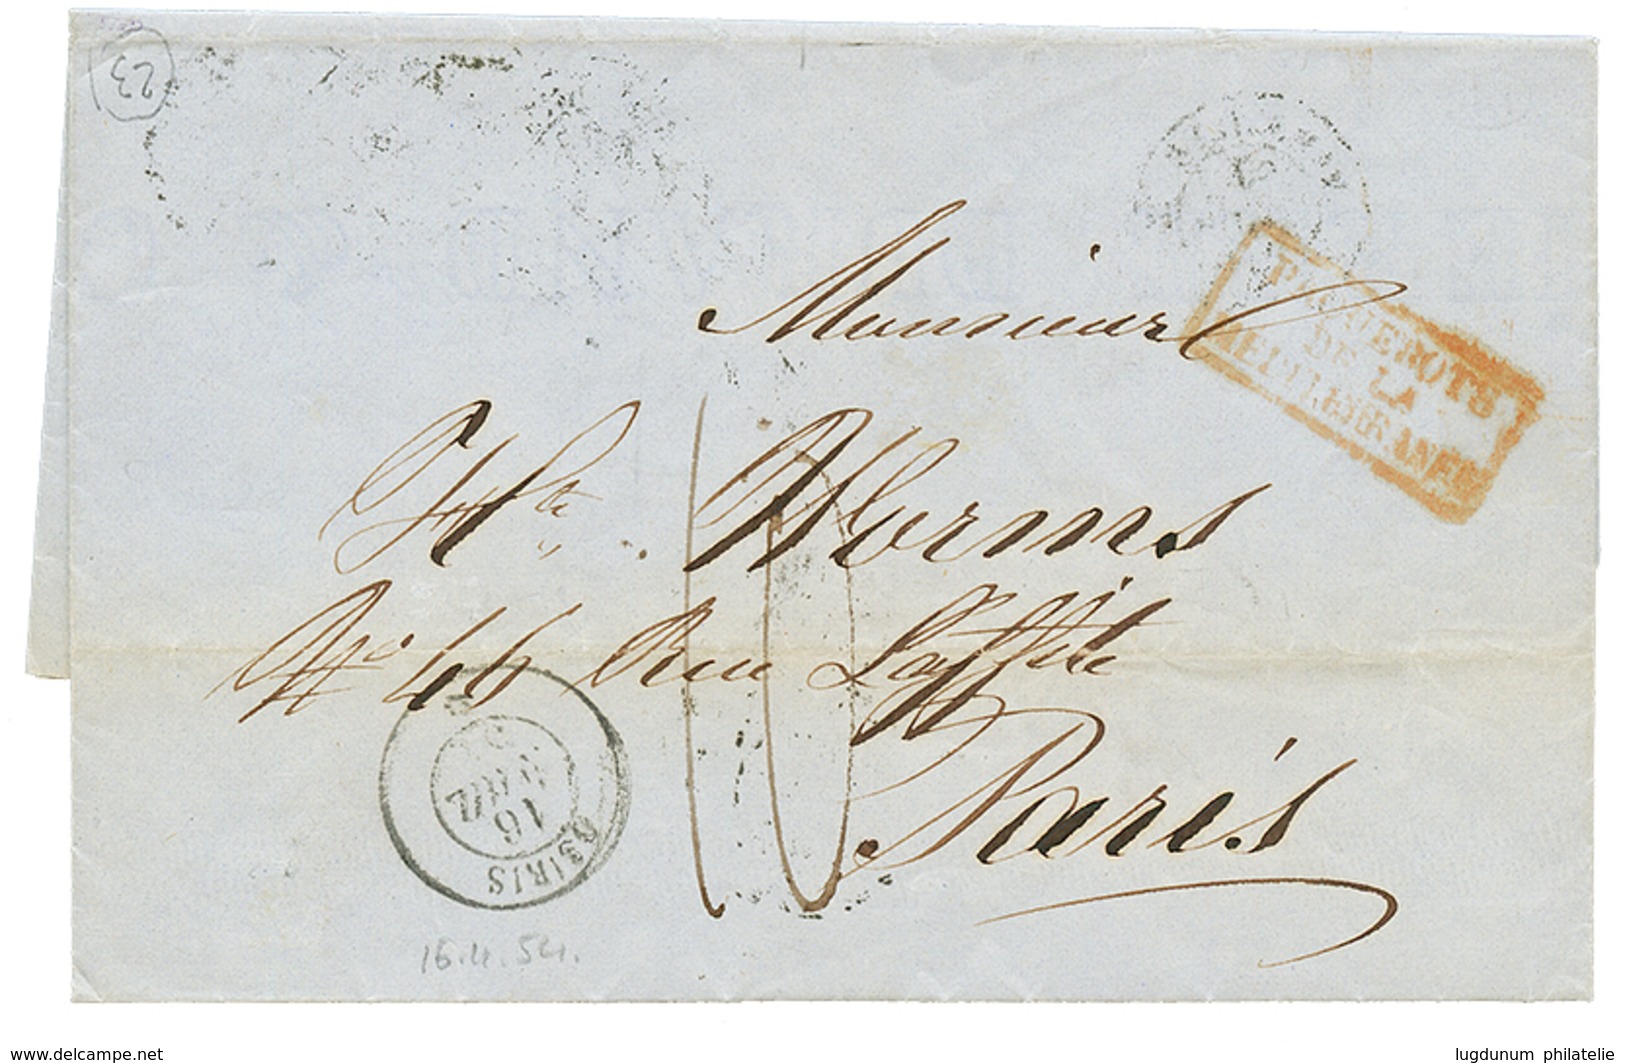 23
PAQUEBOTS
DE LA
MEDITERRANEE
Monsieur
Hte. Worms
No. 46 Rue Laffite
Paris
10
OSIRIS
16
AVRIL
54
16.4.54.
www.delcampe.net
lugdunum philatelie